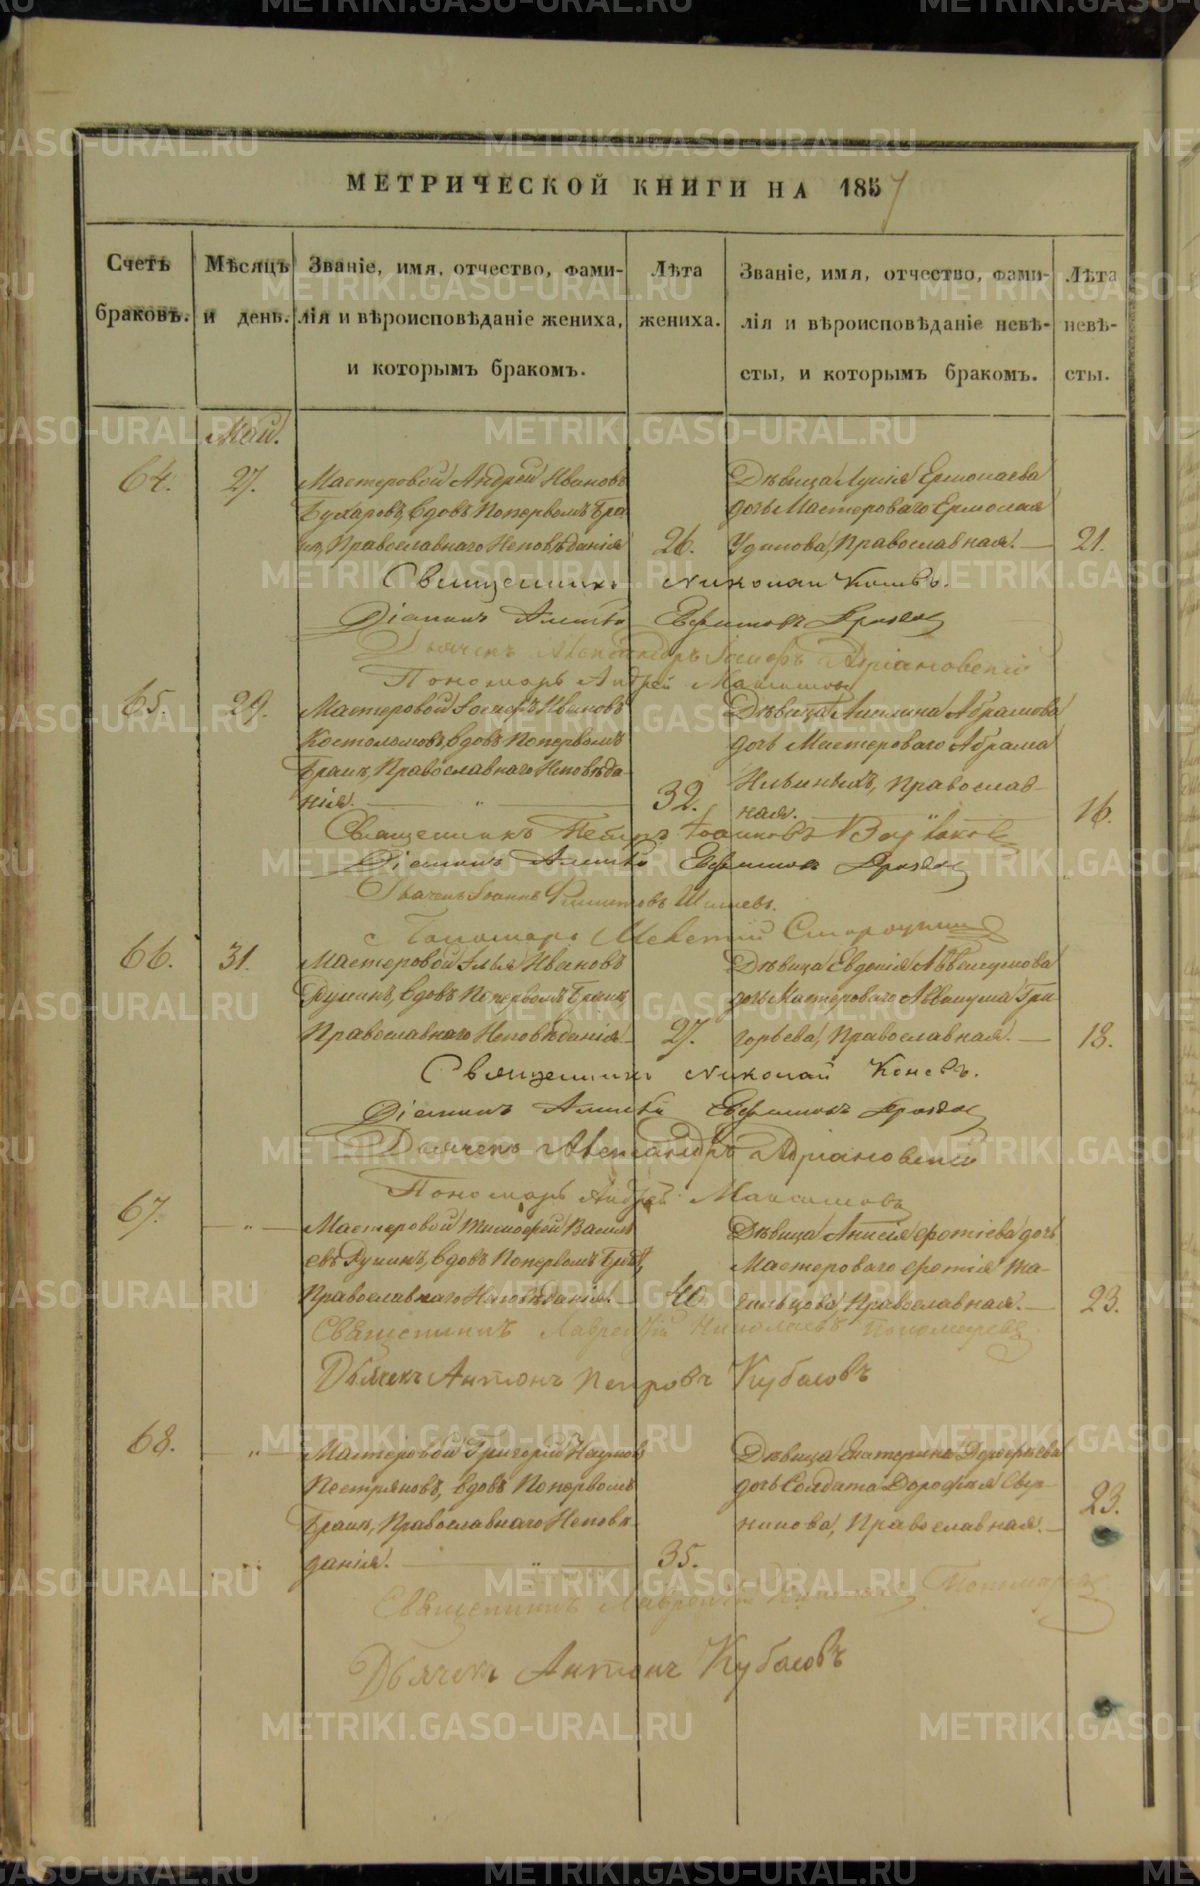 МЕТРИЧЕСКОЙ КНИГИ НА 1857
Счетъ браковъ.
Мѣсяцъ и день.
Званіе, имя, отчество, фамилія и вѣроисповѣданіе жениха, и которымъ бракомъ.
Лѣта жениха.
Званіе, имя, отчество, фамилія и вѣроисповѣданіе невѣсты, и которымъ бракомъ.
Лѣта невѣсты.
Май.
64.
27.
Мастеровой Андрей Ивановъ
Бухаровъ, вдовъ по первомъ бра-
кѣ, Православнаго Исповѣданія
26.
Дѣвица Лукія Ермолаева
дочь Мастероваго Ермолая
Удилова, Православная.
21.
Священникъ Николай Коневъ.
Діаконъ Ефимовъ
Дьячекъ Александръ Адріановскій
Пономарь Андрей Максимовъ
65.
29.
Мастеровой Іосифъ Ивановъ
Костоломовъ, вдовъ по первомъ
бракѣ, Православнаго Исповѣда-
нія.
32.
Дѣвица Акилина Абрамова
дочь Мастероваго Абрама
Ильиныхъ, Православ-
ная.
16.
Священникъ Петръ Іоанновъ
Діаконъ Ефимовъ
Дьячекъ Іоаннъ Филиповъ
Пономарь
66.
31.
Мастеровой Илья Ивановъ
вдовъ по первомъ бракѣ,
Православнаго Исповѣданія.
27.
Дѣвица Евдокія Аввакумова
дочь Мастероваго Аввакума Гри-
горьева, Православная.
18.
Священникъ Николай Коневъ.
Діаконъ Ефимовъ
Дьячекъ Александръ Адріановскій
Пономарь Андрей Максимовъ
67.
"
Мастеровой Тимофей Василь-
евъ вдовъ по первомъ бракѣ,
Православнаго Исповѣданія.
40
Дѣвица Анисія Фотіева дочь
Мастероваго Фотія Та-
гильцова, Православная.
23.
Священникъ Лаврентій Николаевъ Пономаревъ
Дьячекъ Антонъ Петровъ Кубасовъ
68.
"
Мастеровой Григорій Наумовъ
Пестряковъ, вдовъ по первомъ
бракѣ, Православнаго Исповѣ-
данія.
35.
Дѣвица Екатерина Дорофѣева
дочь Солдата Дорофѣя
Православная.
23.
Священникъ Лаврентій Пономаревъ
Дьячекъ Антонъ Кубасовъ
METRIKI.GASO-URAL.RU